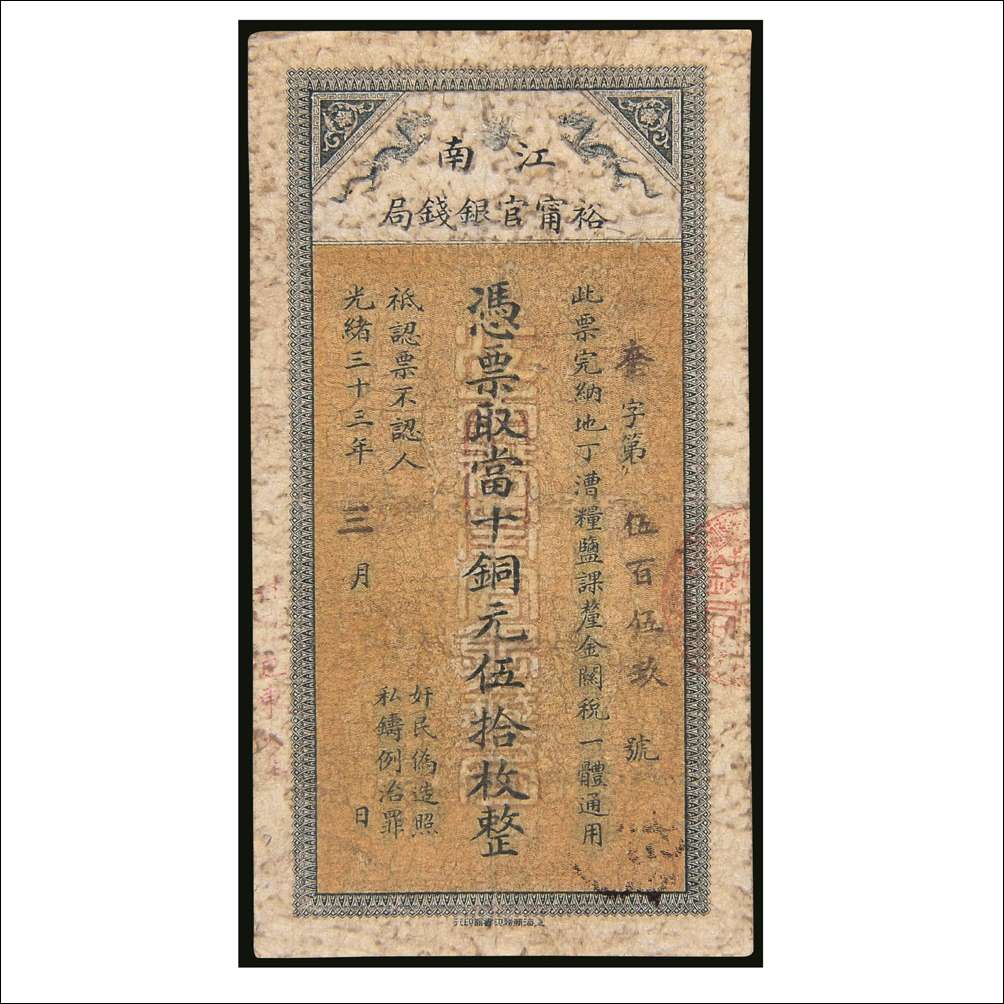 江南
裕甯官銀錢局
字第伍百伍玖號
此票完納地丁漕糧鹽課釐金關稅一體通用
憑票取當十銅元伍拾枚整
祗認票不認人
奸民偽造照
私鑄例治罪
光緒三十三年三月日